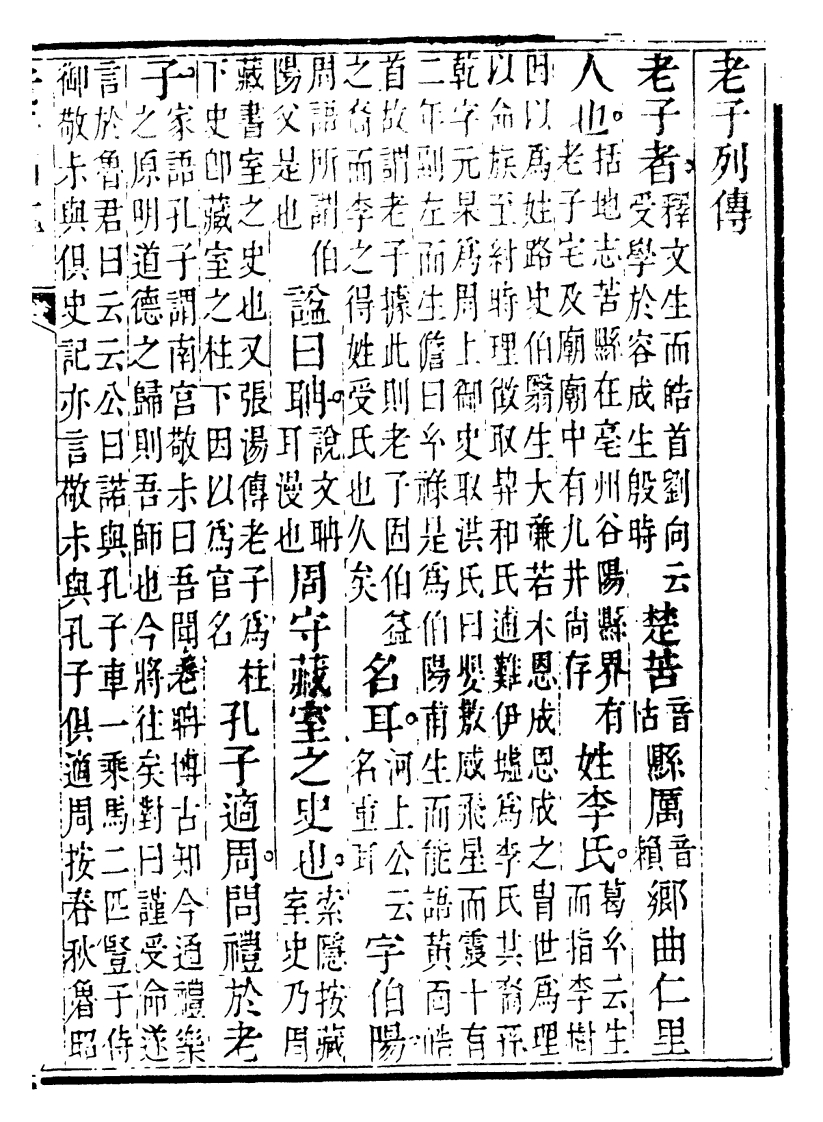 老子列傳
老子者。釋文生而皓首劉向云受學於容成生殷時楚苦音怙縣厲音賴鄉曲仁里
人也。括地志苦縣在亳州谷陽縣界有老子宅及廟廟中有九井尚存姓李氏。葛仚云生而指李樹
因以爲姓路史伯翳生大亷若木恩成恩成之胄世爲理
以命族至紂時理徵取契和氏逋難伊墟爲李氏其裔孫
乾字元杲爲周上御史取洪氏曰嬰敷感飛星而震十有
二年剔左而生儋曰仚祿是爲伯陽甫生而能語黄面皓
首故謂老子據此則老子固伯益之裔而李之得姓受氏也久矣名耳。河上公云名重耳字伯陽。
周語所謂伯陽父是也諡曰聃。說文聃耳漫也周守藏室之史也。索隱按藏室史乃周
藏書室之史也又張湯傳老子爲柱下史卽藏室之柱下因以爲官名孔子適周。問禮於老
子。家語孔子謂南宫敬叔曰吾聞老聃博古知今通禮樂之原明道德之歸則吾師也今將往矣對曰謹受命遂
言於魯君曰云云公曰諾與孔子車一乘馬二匹豎子侍
御敬叔與俱史記亦言敬叔與孔子俱適周按春秋魯昭